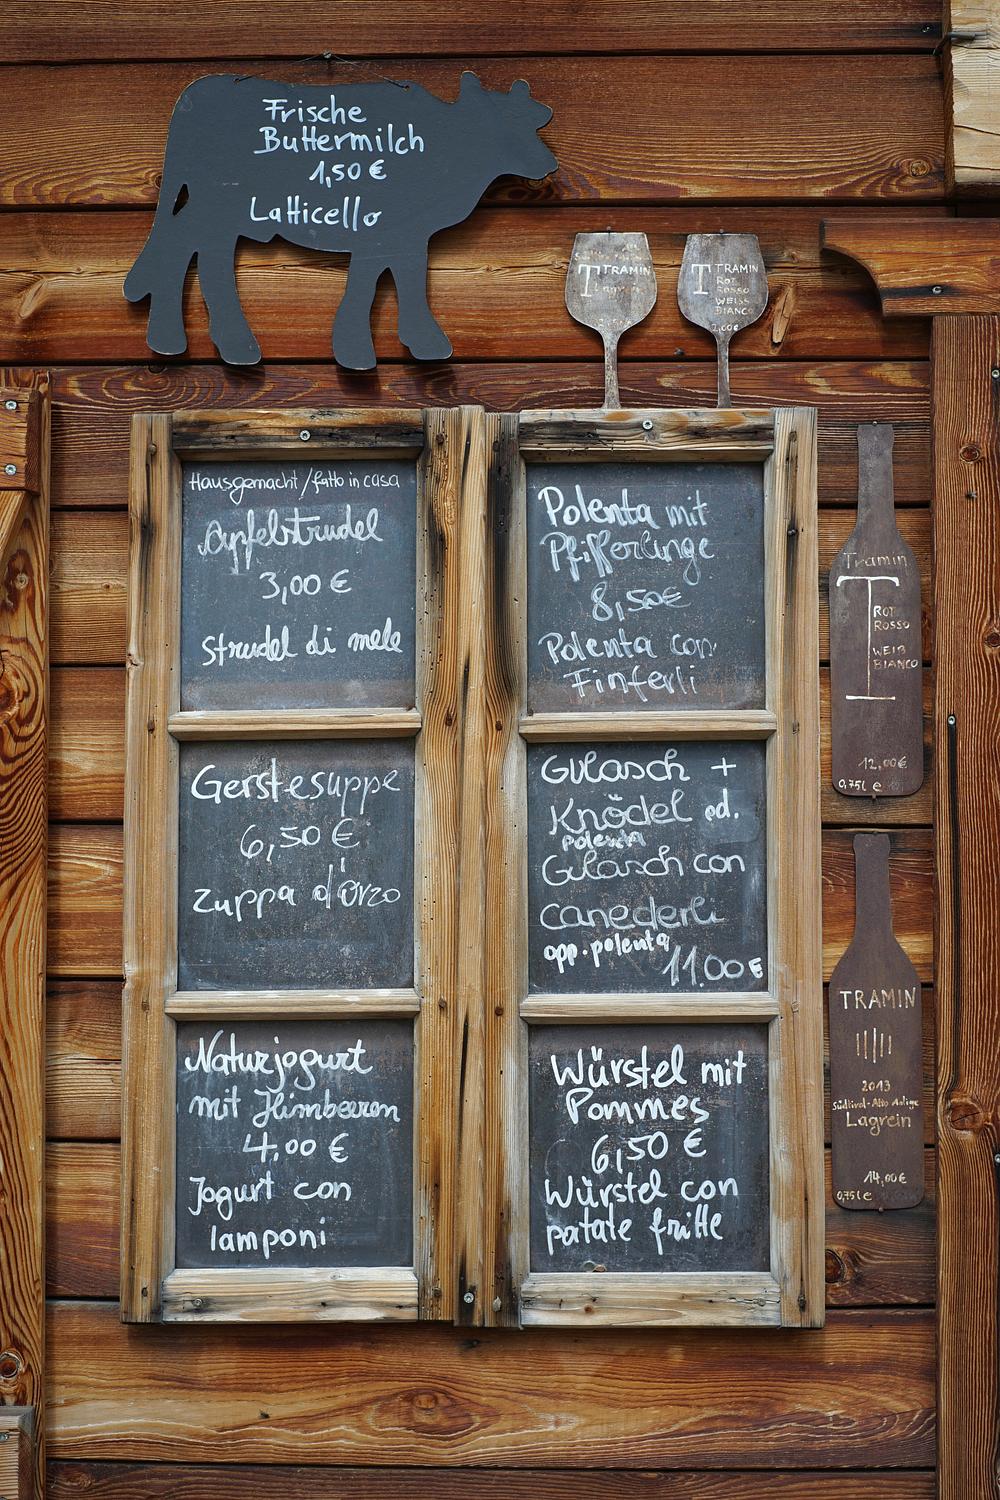 Frische
Buttermilch
1,50 €
Latticello
T TRAMIN
T TRAMIN
ROT
ROSSO
WEISS
BIANCO
2,00€
Hausgemacht/fatto in casa
Apfelstrudel
3,00 €
strudel di mele
Gerstesuppe
6,50 €
zuppa d'orzo
Naturjogurt
mit Himbeeren
4,00 €
Jogurt con
lamponi
Polenta mit
Pfifferlinge
8,50€
Polenta con
Finferli
Gulasch +
Knödel od.
polenta
Gulasch con
canederli
opp. polenta
11.00€
Würstel mit
Pommes
6,50 €
Würstel con
patate fritte
Tramin
T
ROT
ROSSO
WEIß
BIANCO
12,00€
0,75l e
TRAMIN
2013
Südtirol-Alto Adige
Lagrein
14,00€
0,75l e